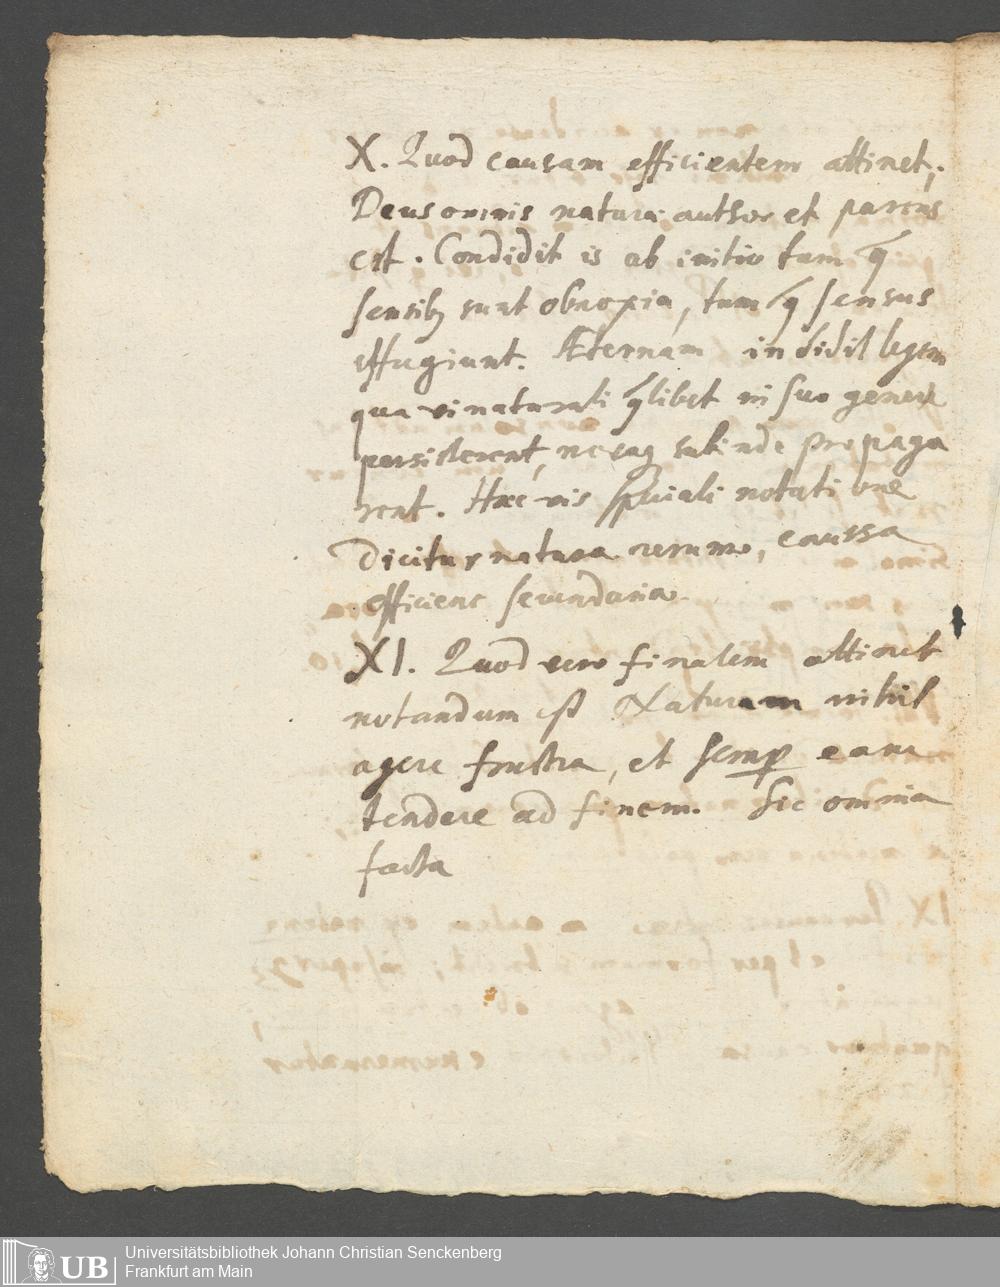 X. Quod causam efficientem attinet,
Deus omnis naturæ author et parens
est. Condidit is ab initio tum q̃
sensib9 sunt obnoxia, tum q̃ sensus
effugiunt. Æternam indidit legem
qua vi naturali q̃libet in suo genere
persisterent, seseq3 subinde propaga
rent. Hæc vis speciali notati one
dicitur natura rerum, caussa
efficiens secundaria.
XI. Quod vero finalem attinet
notandum est Naturam nihil
agere frustra, et semp eam
tendere ad finem. Sic omnia
facta
UB
Universitätsbibliothek Johann Christian Senckenberg
Frankfurt am Main